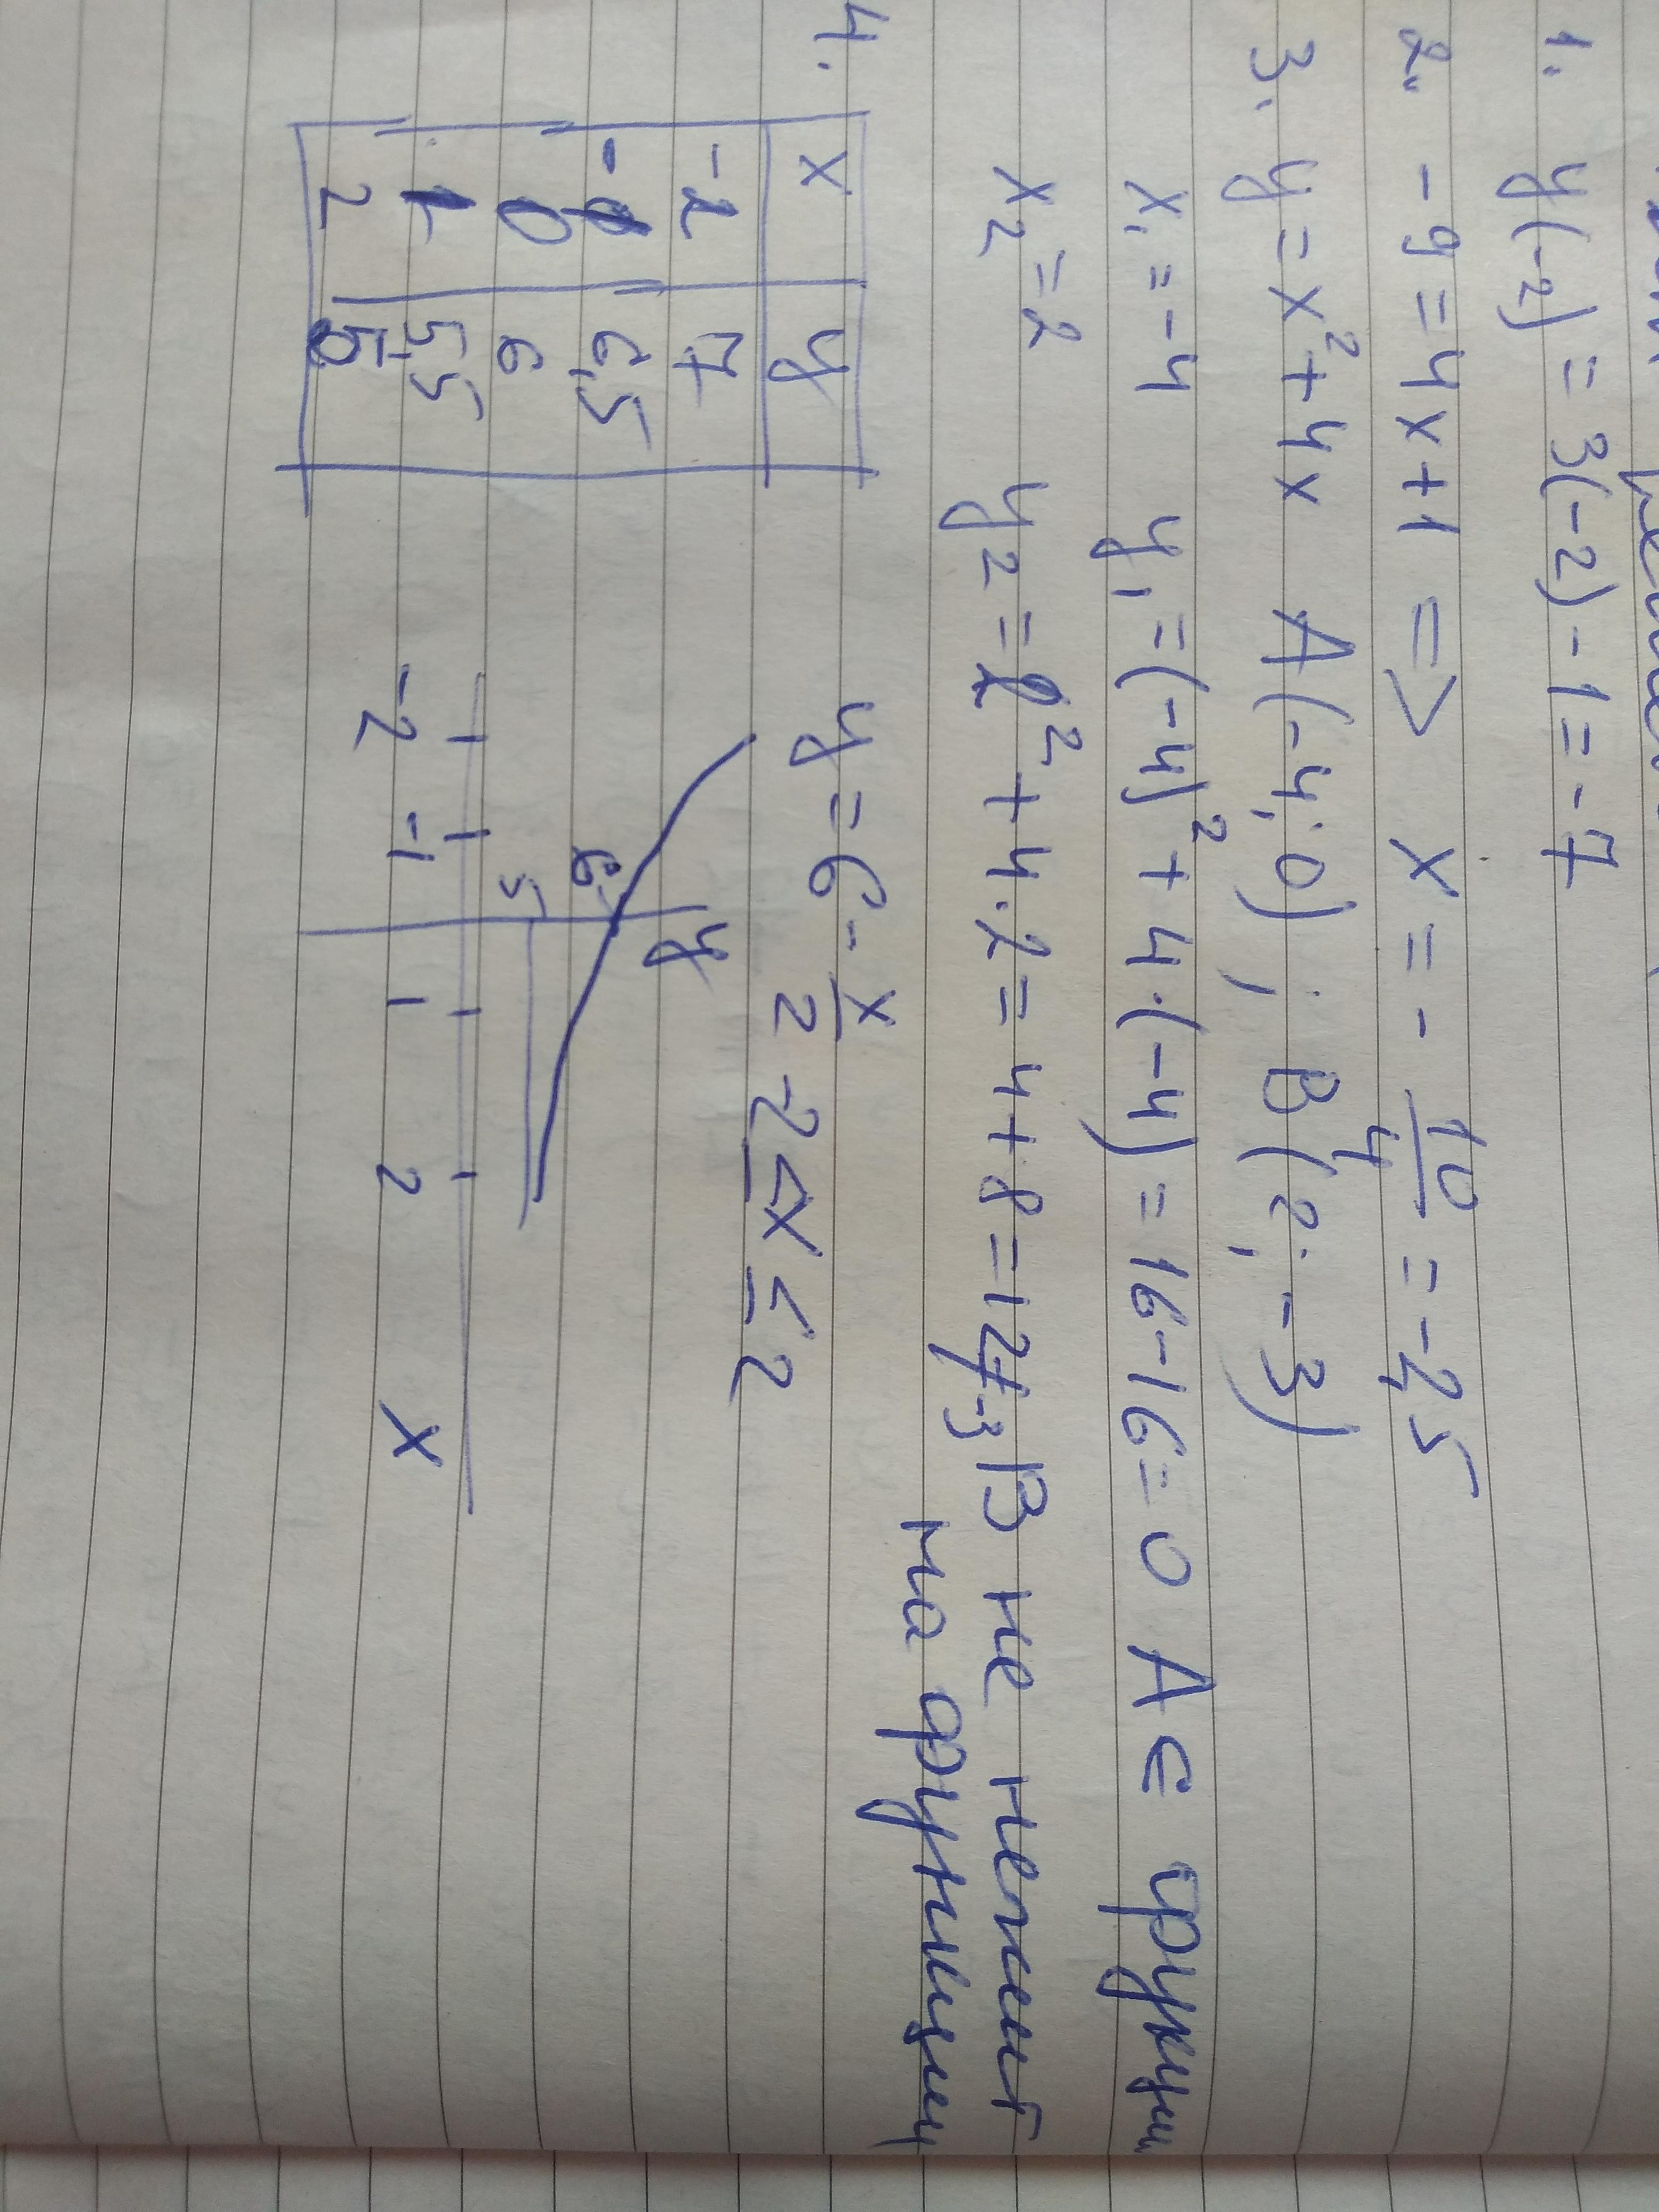 1. y(-2) = 3(-2) - 1 = -7
2. -9 = 4x + 1 => x = - 10/4 = -2,5
3. y = x² + 4x A(-4; 0) ; B(2; -3)
x₁ = -4 y₁ = (-4)² + 4·(-4) = 16-16 = 0 A ∈ функции
x₂ = 2 y₂ = 2² + 4·2 = 4+8 = 12 ≠ -3 B не лежит
на функции
4. y = 6 - x/2 -2 ≤ x ≤ 2
x y
-2 7
-1 6,5
0 6
1 5,5
2 5
y
6
5
-2 -1 1 2 x